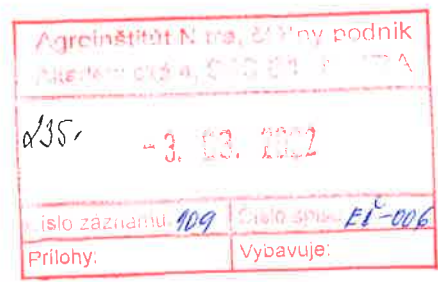 Agroinštitút Nitra, štátny podnik
Akademická 4,
235.
-3. 03. 2022
Číslo záznamu: 109 Číslo spisu: EI-006
Prílohy: Vybavuje: